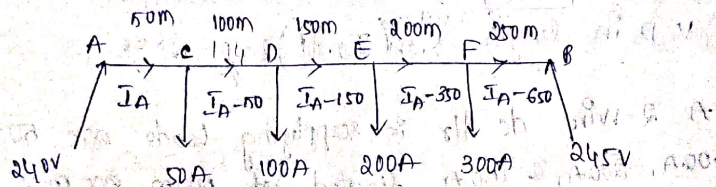 50m 100m 150m 200m 250m
A C D E F B
I_A I_A-50 I_A-150 I_A-350 I_A-650
240V 50A 100A 200A 300A 245V